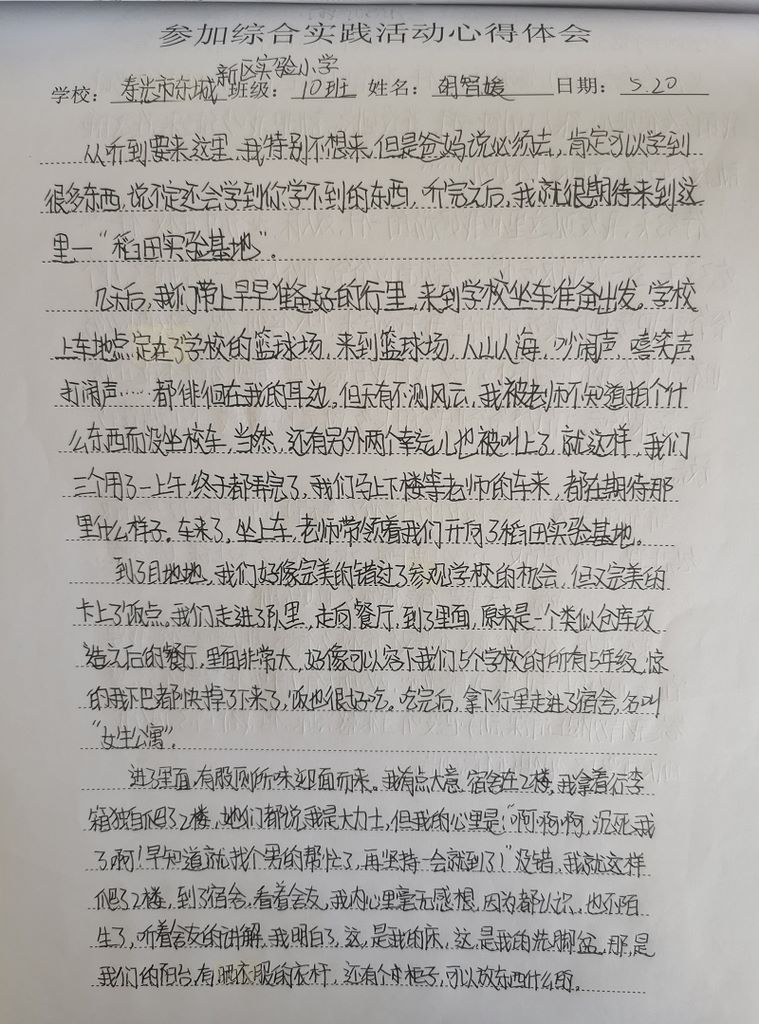 参加综合实践活动心得体会
新区实验小学
学校：寿光市东城 班级：10班 姓名：胡智媛 日期：5.20
从听到要来这里，我特别不想来，但是爸妈说必须去，肯定可以学到
很多东西，说不定还会学到你学不到的东西，听完之后，我就很期待来到这
里一“稻田实验基地”。
几天后，我们带上早早准备好的行里，来到学校坐车准备出发。学校
上车地点定在了学校的篮球场，来到篮球场，人山人海，吵闹声，嘻笑声，
打闹声……都徘徊在我的耳边，但天有不测风云，我被老师不知道拍个什
么东西而没坐校车，当然，还有另外两个幸运儿也被叫上了，就这样，我们
三个用了一上午，终于都弄完了，我们马上下楼等老师的车来，都在期待那
里什么样子。车来了，坐上车，老师带领着我们开向了稻田实验基地。
到了目地地，我们好像完美的错过了参观学校的机会，但又完美的
卡上了饭点。我们走进了队里，走向餐厅，到了里面，原来是一个类似仓库改
造之后的餐厅，里面非常大，好像可以容下我们5个学校的所有5年级，惊
的我下巴都快掉了下来了，饭也很好吃。吃完后，拿下行里走进了宿舍，名叫
“女生公寓”。
进了里面，有股厕所味迎面而来。我有点大意，宿舍在2楼，我拿着行李
箱独自爬了2楼，她们都说我是大力士，但我的心里是：“啊啊啊，沉死我
了啊！早知道就找个男的帮忙了，再坚持一会就到了！”没错，我就这样
爬了2楼，到了宿舍，看着舍友，我内心里毫无感想，因为都认识，也不陌
生了，听着舍友的讲解，我明白了，这，是我的床，这，是我的洗脚盆，那，是
我们的阳台，有晒衣服的衣杆，还有个柜子，可以放东西什么的。